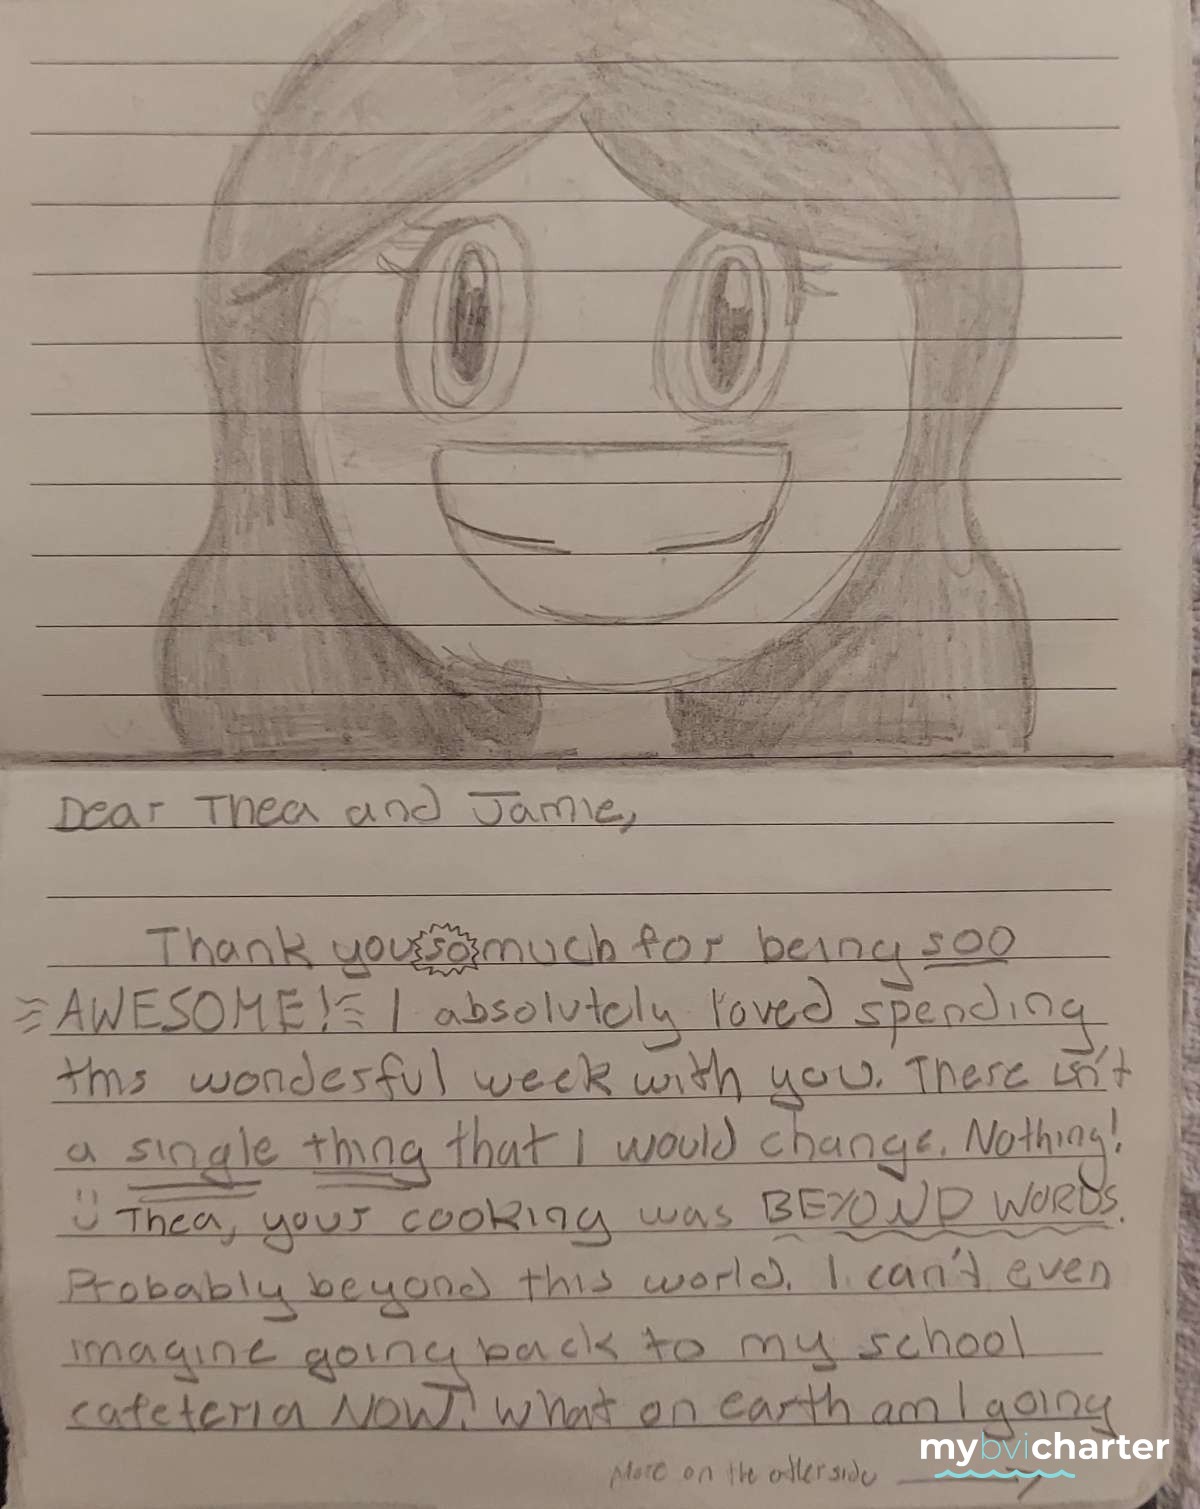 Dear Thea and Jamie,
Thank you so much for being soo
AWESOME! I absolutely loved spending
this wonderful week with you. There isn't
a single thing that I would change. Nothing!
Thea, your cooking was BEYOND WORDS.
Probably beyond this world. I can't even
imagine going back to my school
cafeteria NOW! What on earth am I going
More on the other side
mybvicharter